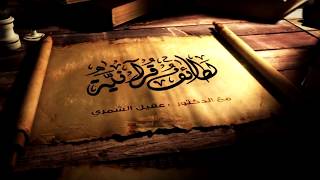 لطائف قرآنية
مع الدكتور : عقيل الشمري